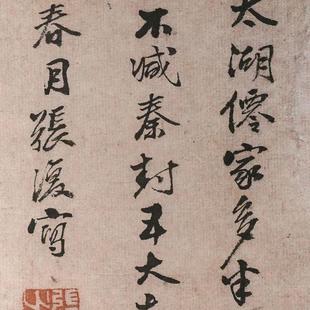 太湖僊家多半
不减秦封五大夫
春月張復寫